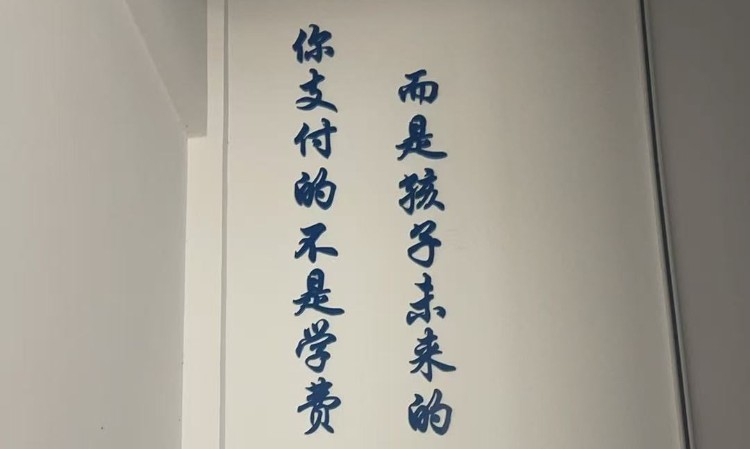 你支付的不是学费
而是孩子未来的